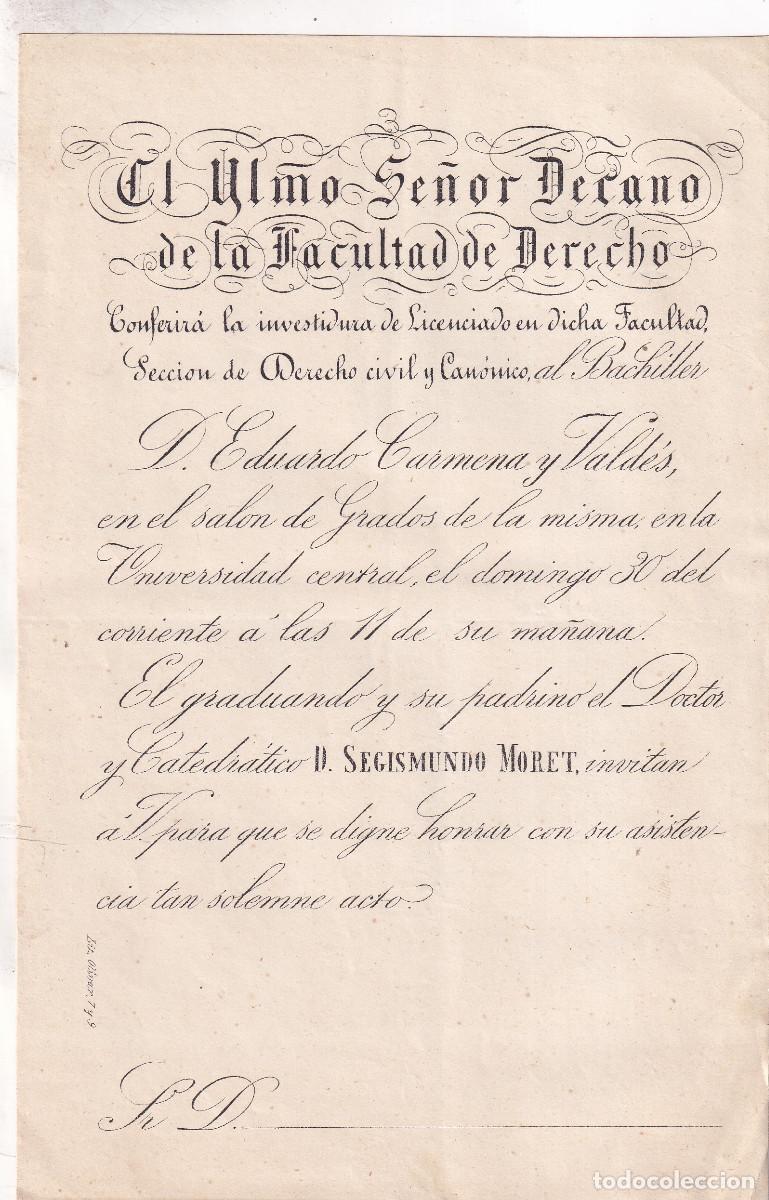 El Ylmo Señor Decano
de la Facultad de Derecho
Conferirá la investidura de Licenciado en dicha Facultad,
Seccion de Derecho civil y Canónico, al Bachiller
D. Eduardo Carmena y Valdés,
en el salon de Grados de la misma, en la
Universidad central, el domingo 30 del
corriente á las 11 de su mañana.
El graduando y su padrino el Doctor
y Catedrático D. SEGISMUNDO MORET, invitan
á V. para que se digne honrar con su asisten-
cia tan solemne acto.
Lit. 7 y 9
Sr D.
todocoleccion